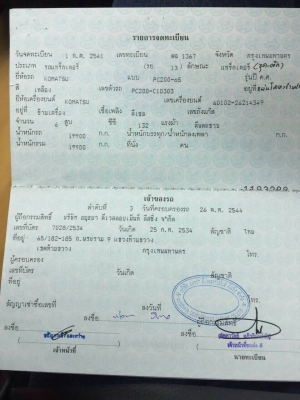 รายการจดทะเบียน
วันจดทะเบียน 1 ก.ค. 2541 เลขทะเบียน 1367 จังหวัด กรุงเทพมหานคร
ประเภท รถแทร็กเตอร์ (รย 13) ลักษณะ แทร็กเตอร์
ยี่ห้อรถ KOMATSU แบบ PC200-6S รุ่นปี ค.ศ.
สี เหลือง เลขตัวรถ PC200-C10303 อยู่ที่
ยี่ห้อเครื่องยนต์ KOMATSU เลขเครื่องยนต์ 6D102-26214349
อยู่ที่ ข้างเครื่อง เชื้อเพลิง ดีเซล เลขถังแก๊ส
จำนวน 6 สูบ ซีซี 132 แรงม้า
น้ำหนักรถ 19900 ก.ก. น้ำหนักบรรทุก/น้ำหนักลงเพลา ก.ก.
น้ำหนักรวม 19900 ก.ก. ที่นั่ง คน
เจ้าของรถ
ลำดับที่ 3 วันที่ครอบครองรถ 26 พ.ค. 2544
ผู้ถือกรรมสิทธิ์ บริษัท อยุธยา ดีเวลลอปเม้นท์ ลีสซิ่ง จำกัด
เลขที่บัตร 7028/2534 วันเกิด 25 ก.ค. 2534 สัญชาติ ไทย
ที่อยู่ 65/182-185 ถ.พระราม 9 แขวงห้วยขวาง
เขตห้วยขวาง กรุงเทพมหานคร โทร.
ผู้ครอบครอง
เลขที่บัตร วันเกิด สัญชาติ
ที่อยู่ โทร.
สัญญาเช่าซื้อเลขที่ ลงวันที่
ลงชื่อ ลงชื่อ ผู้ถือกรรมสิทธิ์
ลงชื่อ
เจ้าหน้าที่ นายทะเบียน